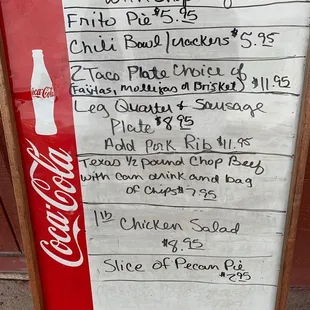 Frito Pie $5.95
Chili Bowl/crackers $5.95
2 Taco Plate Choice of
Fajitas, mollejas or Brisket $11.95
Leg Quarter & Sausage
Plate $8.95
Add Pork Rib $11.95
Texas 1/2 pound Chop Beef
with can drink and bag
of Chips $7.95
1 lb Chicken Salad
$8.95
Slice of Pecan Pie
$2.95
Coca-Cola
Coca-Cola